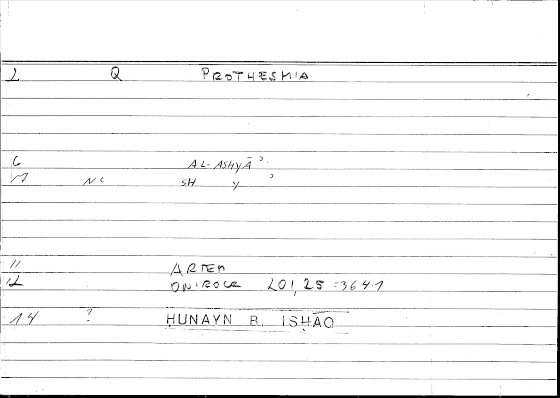 2 Q PROTHESMIA
6 AL-ASHYĀʾ
17 NC SH Y ʾ
11 ARTEM
12 ONIROCR 201,25 = 364.1
14 ? ḤUNAYN B. ISḤĀQ